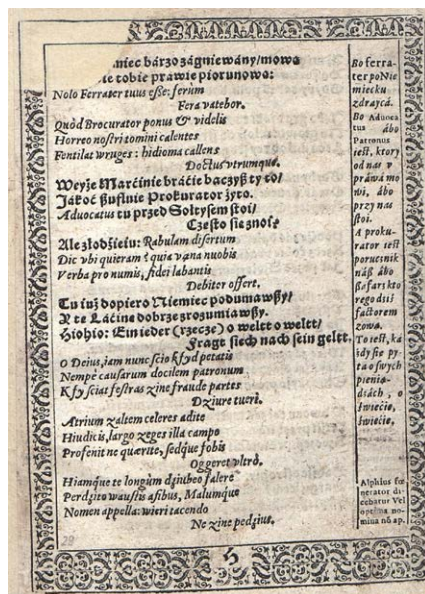 niec bárzo zágniewány/mowa
ie tobie prawie piorunowo:
Nolo Ferrater tuus esse: ferum
Fera vatebor.
Quòd Brocurator ponus & videlis
Horreo nostri tomini calentes
Fentilat vruges: hidioma callens
Doctus vtrumque.
Weyże Márćinie bráćie baczyß ty to/
Jákoć ßuflnie Prokurator żyto.
Aduocatus tu przed Sołtysem stoi/
Często się znoi?
Ale złodźieiu: Rabulam disertum
Dic vbi quieram? quia vana nuobis
Verba pro numis, fidei labantis
Debiter offert.
Tu iuż dopiero Niemiec podumawßy/
Y te Láćine dobrze zrozumiawßy.
Hiohio: Ein ieder (rzecze) o weltt o weltt/
Fragt siech nach sein geltt.
O Deius, iam nunc scio kfyd petatis
Nempè causarum docilem patronum
Kfy sciat festras zine fraude partes
Dziure tueri.
Atrium zaltem celeres adite
Hiudicis, largo zeges illa campo
Profenit ne quærite, sedque fobis
Oggeret vltrò.
Hiamque te longùm dziubeo falere
Perdzito waustis asibus, Malumque
Nomen appella: wieri tacendo
Ne zine pedzius.
Bo ferra-
ter po Nie
miecku
zdrajcá.
Bo Aduoca
tus ábo
Patronus
iest, ktory
od nas v
práwá mo
wi, ábo
przy nas
stoi.
A proku-
rator iest
porucznik
náß ábo
ßafarz kto
rego dziś
factorem
zowa.
To iest, ká
żdy się py
ta o swych
pienią-
dzách, o
świećie,
świećie.
Alphius fœ
nerator di-
cebatur Vel
optima no-
mina nō ap.
29
H